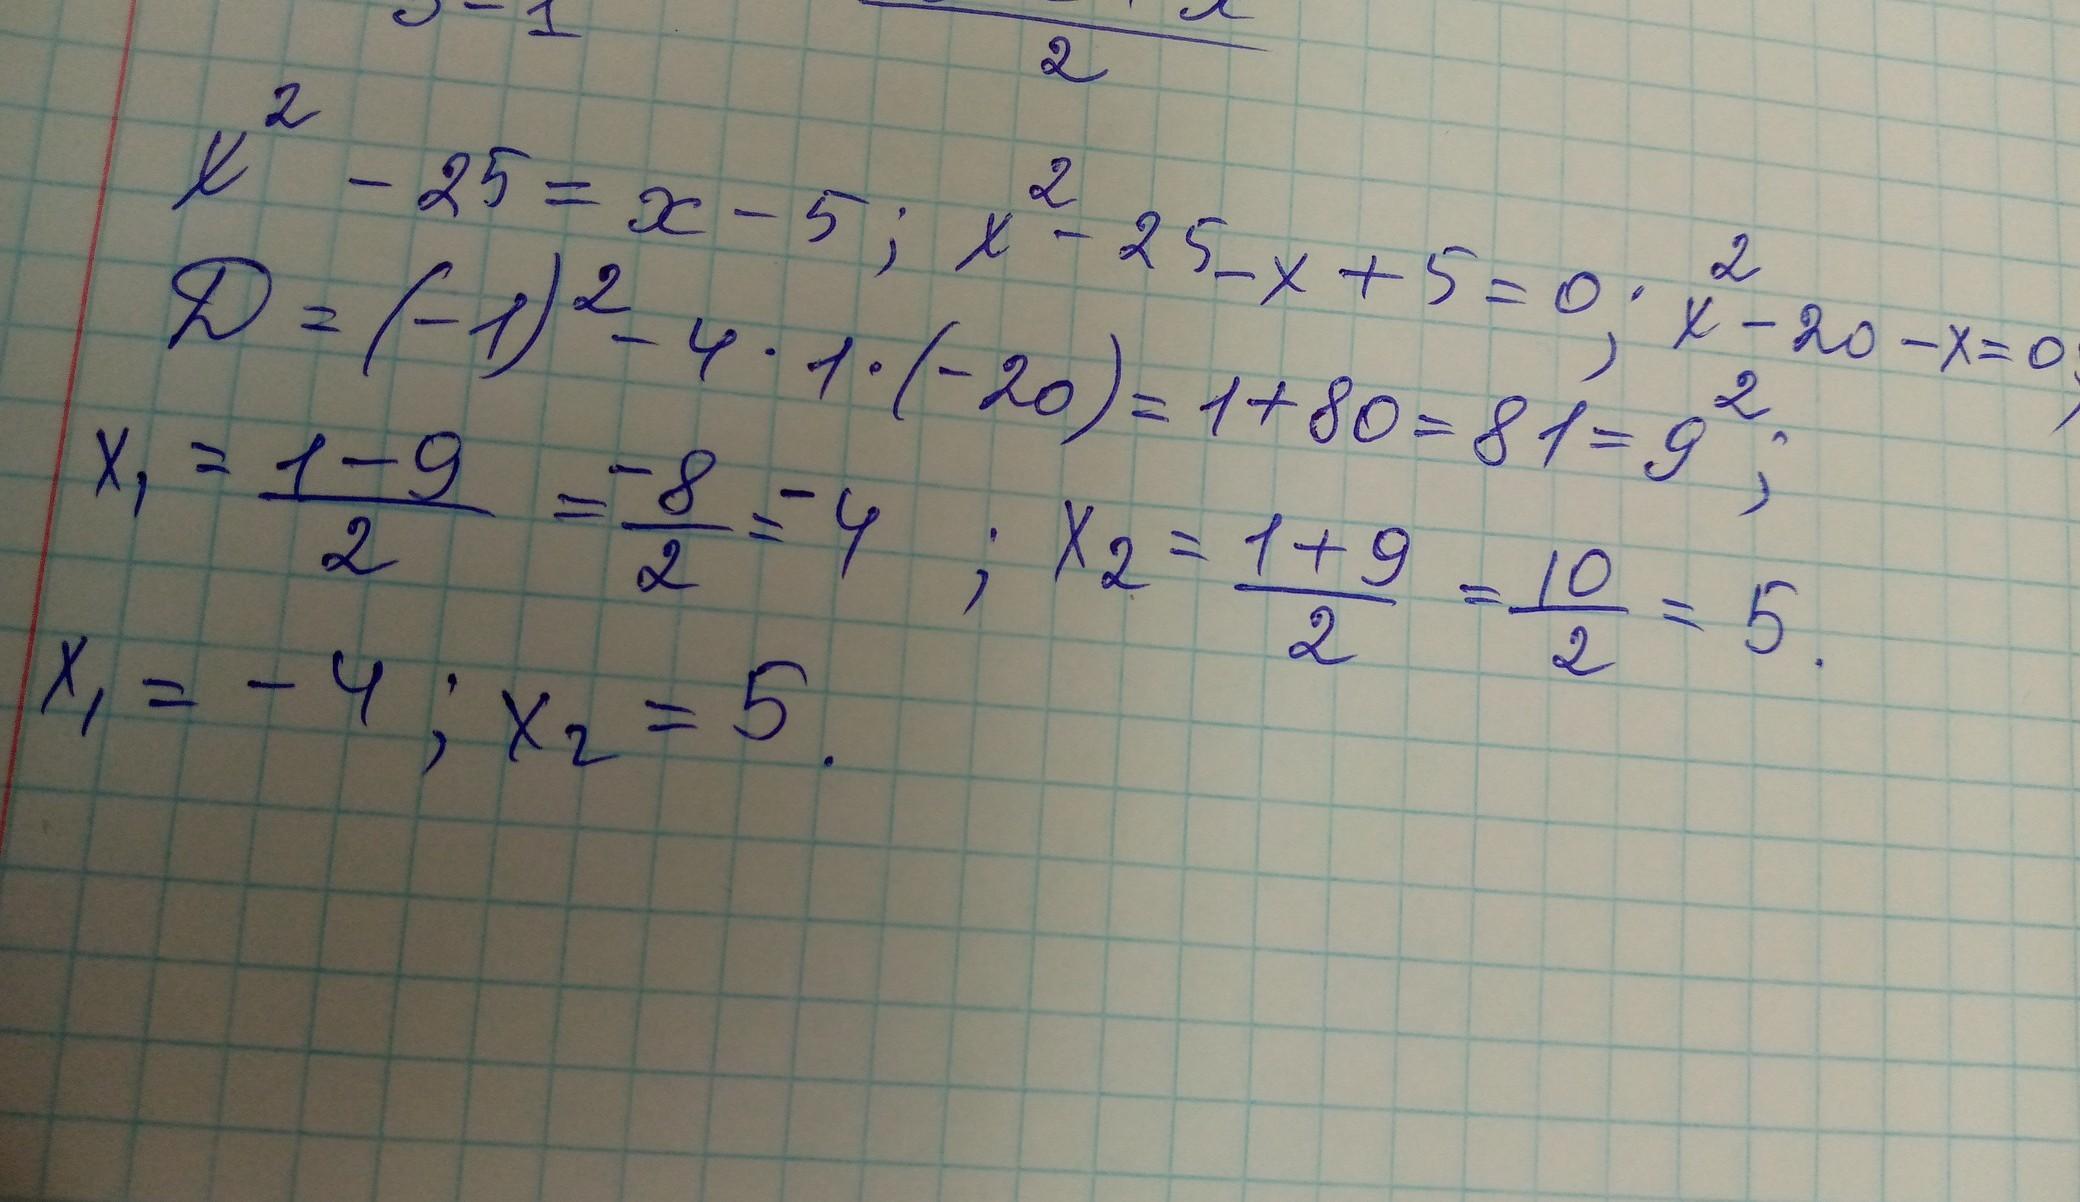 5-1 2
x² - 25 = x - 5; x² - 25 - x + 5 = 0; x² - 20 - x = 0;
D = (-1)² - 4 · 1 · (-20) = 1 + 80 = 81 = 9²;
x₁ = (1-9)/2 = -8/2 = -4 ; x₂ = (1+9)/2 = 10/2 = 5.
x₁ = -4; x₂ = 5.